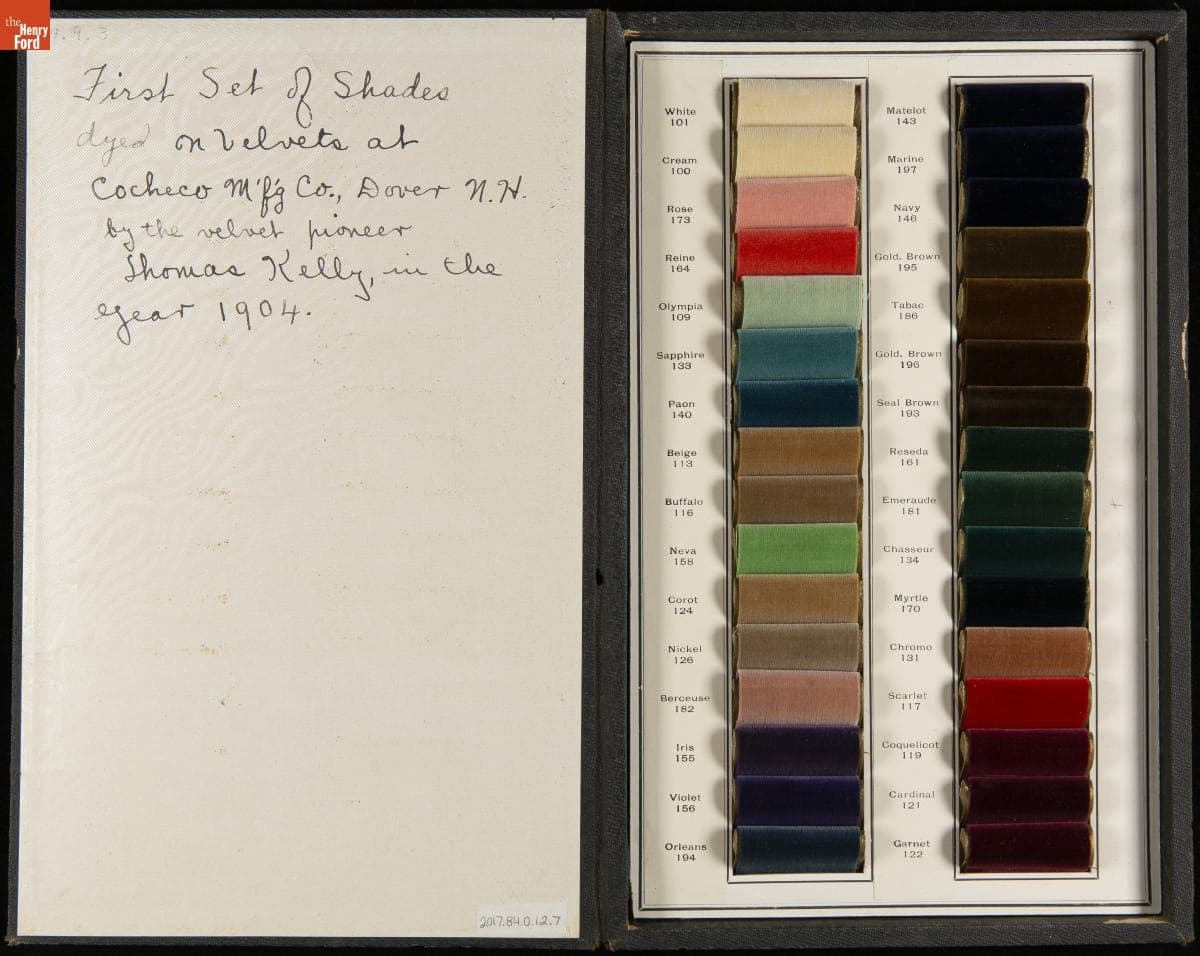 the
Henry
Ford
First Set of Shades
dyed on Velvets at
Cocheco M'f'g Co., Dover N.H.
by the velvet pioneer
Thomas Kelly, in the
year 1904.
2017.84.0.12.7
White
101
Cream
100
Rose
173
Reine
164
Olympia
109
Sapphire
133
Paon
140
Beige
113
Buffalo
116
Neva
158
Corot
124
Nickel
126
Berceuse
182
Iris
155
Violet
156
Orleans
194
Matelot
143
Marine
197
Navy
146
Gold. Brown
195
Tabac
186
Gold. Brown
196
Seal Brown
193
Reseda
161
Emeraude
181
Chasseur
134
Myrtle
170
Chromo
131
Scarlet
117
Coquelicot
119
Cardinal
121
Garnet
122